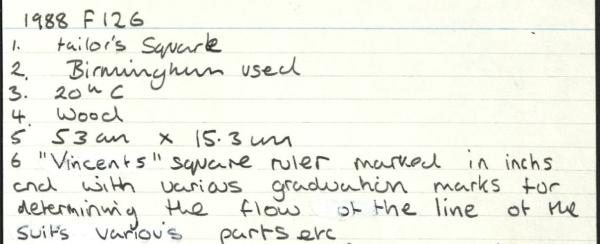 1988 F126
1. tailor's Square
2. Birmingham used
3. 20th C
4. Wood
5 53cm x 15.3cm
6 "Vincents" square ruler marked in inchs
and with various graduation marks for
determining the flow of the line of the
suits various parts etc